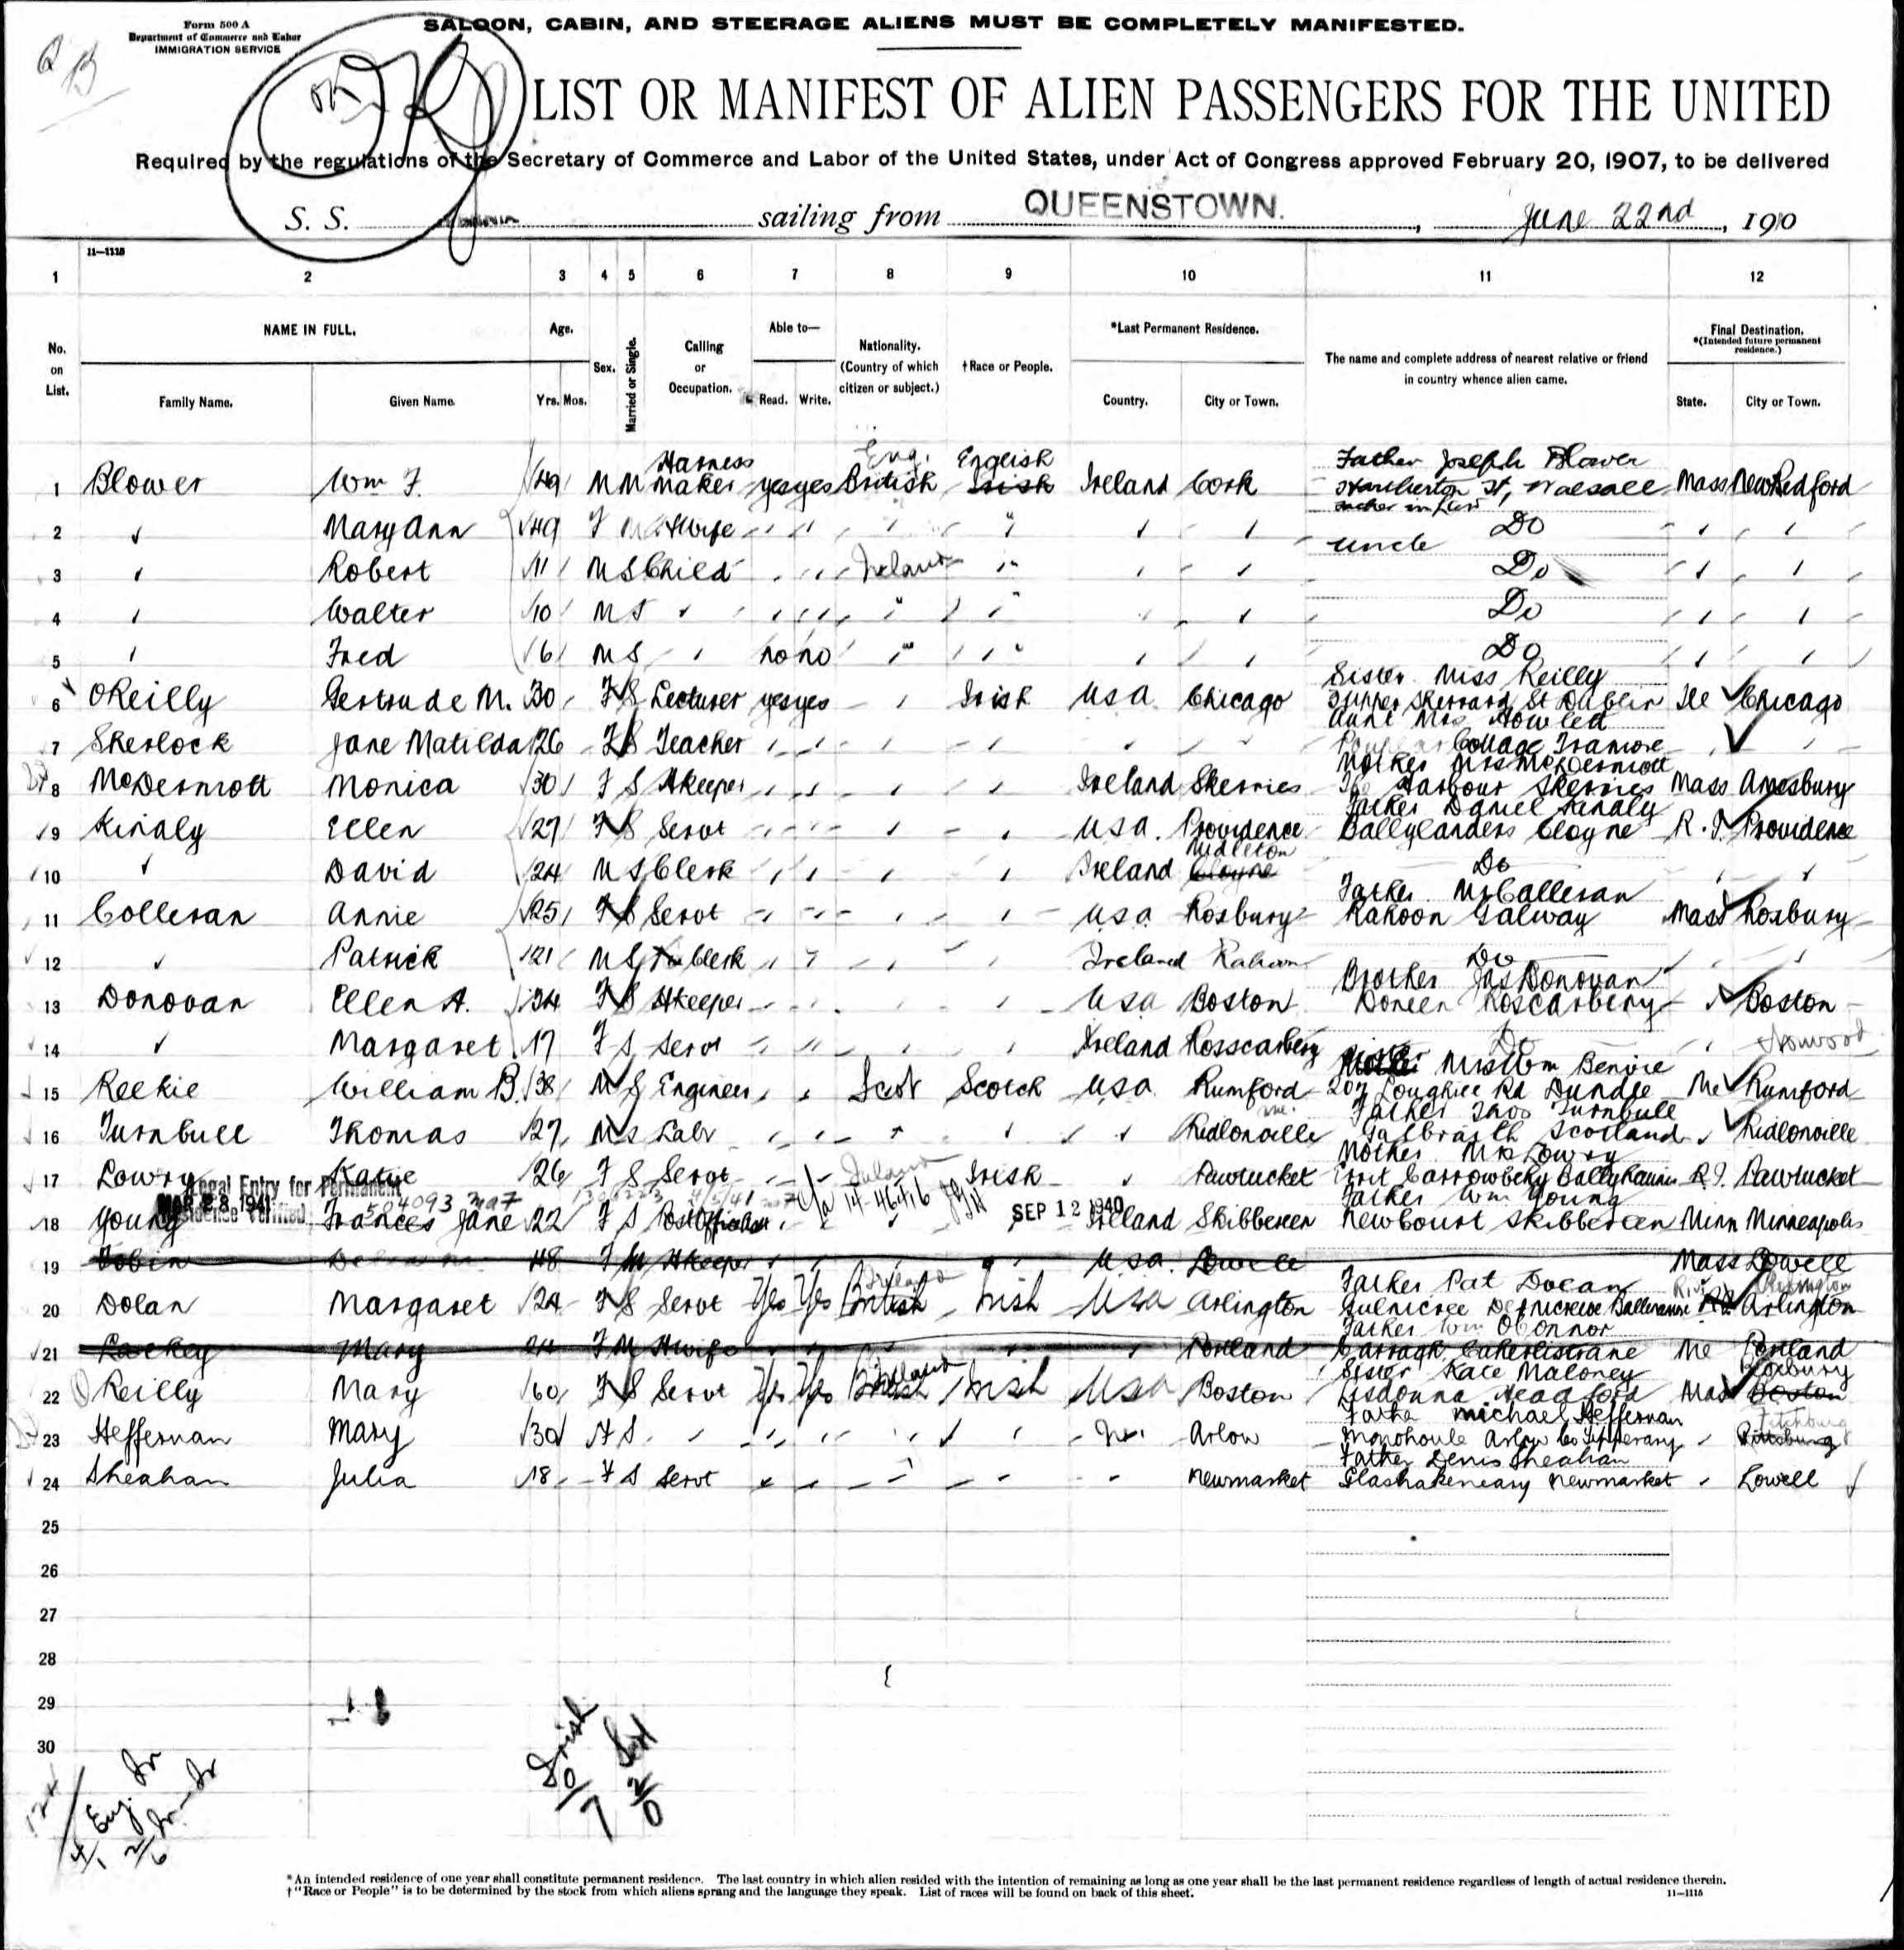 Form 500 A
Department of Commerce and Labor
IMMIGRATION SERVICE
SALOON, CABIN, AND STEERAGE ALIENS MUST BE COMPLETELY MANIFESTED.
OK
LIST OR MANIFEST OF ALIEN PASSENGERS FOR THE UNITED
Required by the regulations of the Secretary of Commerce and Labor of the United States, under Act of Congress approved February 20, 1907, to be delivered
S. S. sailing from QUEENSTOWN. , June 22nd , 1910
11—1115
1 2 3 4 5 6 7 8 9 10 11 12
No. on List.
NAME IN FULL.
Family Name. Given Name.
Age.
Yrs. Mos.
Sex.
Married or Single.
Calling or Occupation.
Able to—
Read. Write.
Nationality.
(Country of which citizen or subject.)
†Race or People.
*Last Permanent Residence.
Country. City or Town.
The name and complete address of nearest relative or friend
in country whence alien came.
Final Destination.
*(Intended future permanent residence.)
State. City or Town.
Father Joseph Blower
1 Blower Wm F. 49 M M Harness maker yes yes Eng. British English Irish Ireland Cork St, Walsall Mass New Bedford
2 " Mary Ann 49 F M Hwife Do
uncle
3 " Robert 11 M S Child Ireland " Do
4 " Walter 10 M S " " Do
5 " Fred 6 M S " no no " " Do
Sister Miss Reilly
6 OReilly Gertrude M. 30 F S Lecturer yes yes " Irish USA Chicago Upper Sherrard St Dublin Ill Chicago
Aunt Mrs Howlett
7 Sherlock Jane Matilda 26 F S Teacher Cottage Tramore
Mother Mrs McDermott
8 McDermott Monica 30 F S Hkeeper Ireland Skerries The Harbour Skerries Mass Amesbury
Father Daniel Kinaly
9 Kinaly Ellen 27 F S Servt USA. Providence Ballylanders Cloyne R.I. Providence
10 " David 24 M S Clerk Ireland Midleton Cloyne Do
Father Mr Colleran
11 Colleran Annie 25 F S Servt USA Roxbury Rahoon Galway Mass Roxbury
12 " Patrick 21 M S Clerk Ireland Rahoon Do
Brother Jas Donovan
13 Donovan Ellen A. 34 F S Hkeeper USA Boston Roscarbery Boston
14 " Margaret 17 F S Servt Ireland Rosscarbery Do Norwood
15 Reekie William B. 38 M S Engineer Scot Scotch USA Rumford 207 Loughee Rd Dundee Me Rumford
Father Thos Turnbull
16 Turnbull Thomas 27 M S Labr me. Ridlonville Galbraith Scotland Ridlonville
Mother Mrs Lowry
17 Lowry Katie 26 F S Servt Ireland Irish Pawtucket Ballyhaunis R.I. Pawtucket
Legal Entry for Permanent
MAR 28 1941
Residence Verified
SEP 12 1940
Father Wm Young
18 Young Frances Jane 22 F S Ireland Skibbereen Newcourt Skibbereen Minn Minneapolis
19 Tobin 48 F M Hkeeper USA. Lowell Mass Lowell
Father Pat Dolan
20 Dolan Margaret 24 F S Servt Yes Yes Ireland British Irish USA Arlington Arlington
Father Wm OConnor
21 Lackey Mary 24 F M Hwife Portland Carragh Caherlistrane Me Portland
Sister Kate Maloney Roxbury
22 Reilly Mary 60 F S Servt Yes Yes Ireland British Irish USA Boston Lisdonna Headford Mass Boston
Father Michael Heffernan Fitchburg
23 Heffernan Mary 30 F S Arlow Monohoule Arlow Co Tipperary Pittsburg
Father Denis Sheahan
24 Sheahan Julia 18 F S Servt Newmarket Glashakeneary Newmarket Lowell
25
26
27
28
29
30
Irish
Scot
Eng.
*An intended residence of one year shall constitute permanent residence. The last country in which alien resided with the intention of remaining as long as one year shall be the last permanent residence regardless of length of actual residence therein.
†"Race or People" is to be determined by the stock from which aliens sprang and the language they speak. List of races will be found on back of this sheet.
11—1115